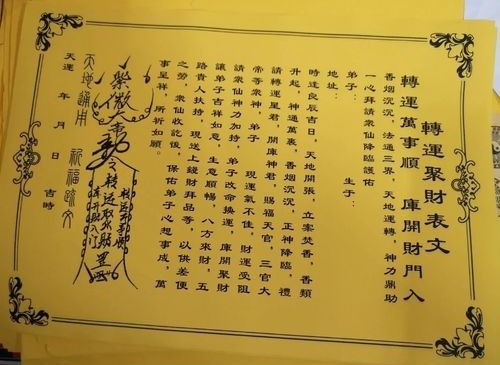 轉運聚財表文
轉運萬事順　庫開財門入
香烟沉沉，法通三界，天地運轉，神力鼎助
一心拜請衆仙降臨護佑
弟子：　生于：
地址：
時逢良辰吉日，天地開張，立案焚香，香類
升起，神通萬裏，香烟沉沉，正神降臨，禮
請轉運星君，開庫神君，賜福天官，三官大
帝等衆神，弟子　現運氣不佳，財運受阻
請衆仙神力加持，弟子改命換運，庫開聚財
讓弟子吉祥如意，生意順暢，八方來財，五
路貴人扶持，現送上錢財拜品等，以供差便
之勞，衆仙收訖後，保佑弟子心想事成，萬
事呈祥，所祈如願。
天地通用　祈福疏文
天運　年　月　日　吉時